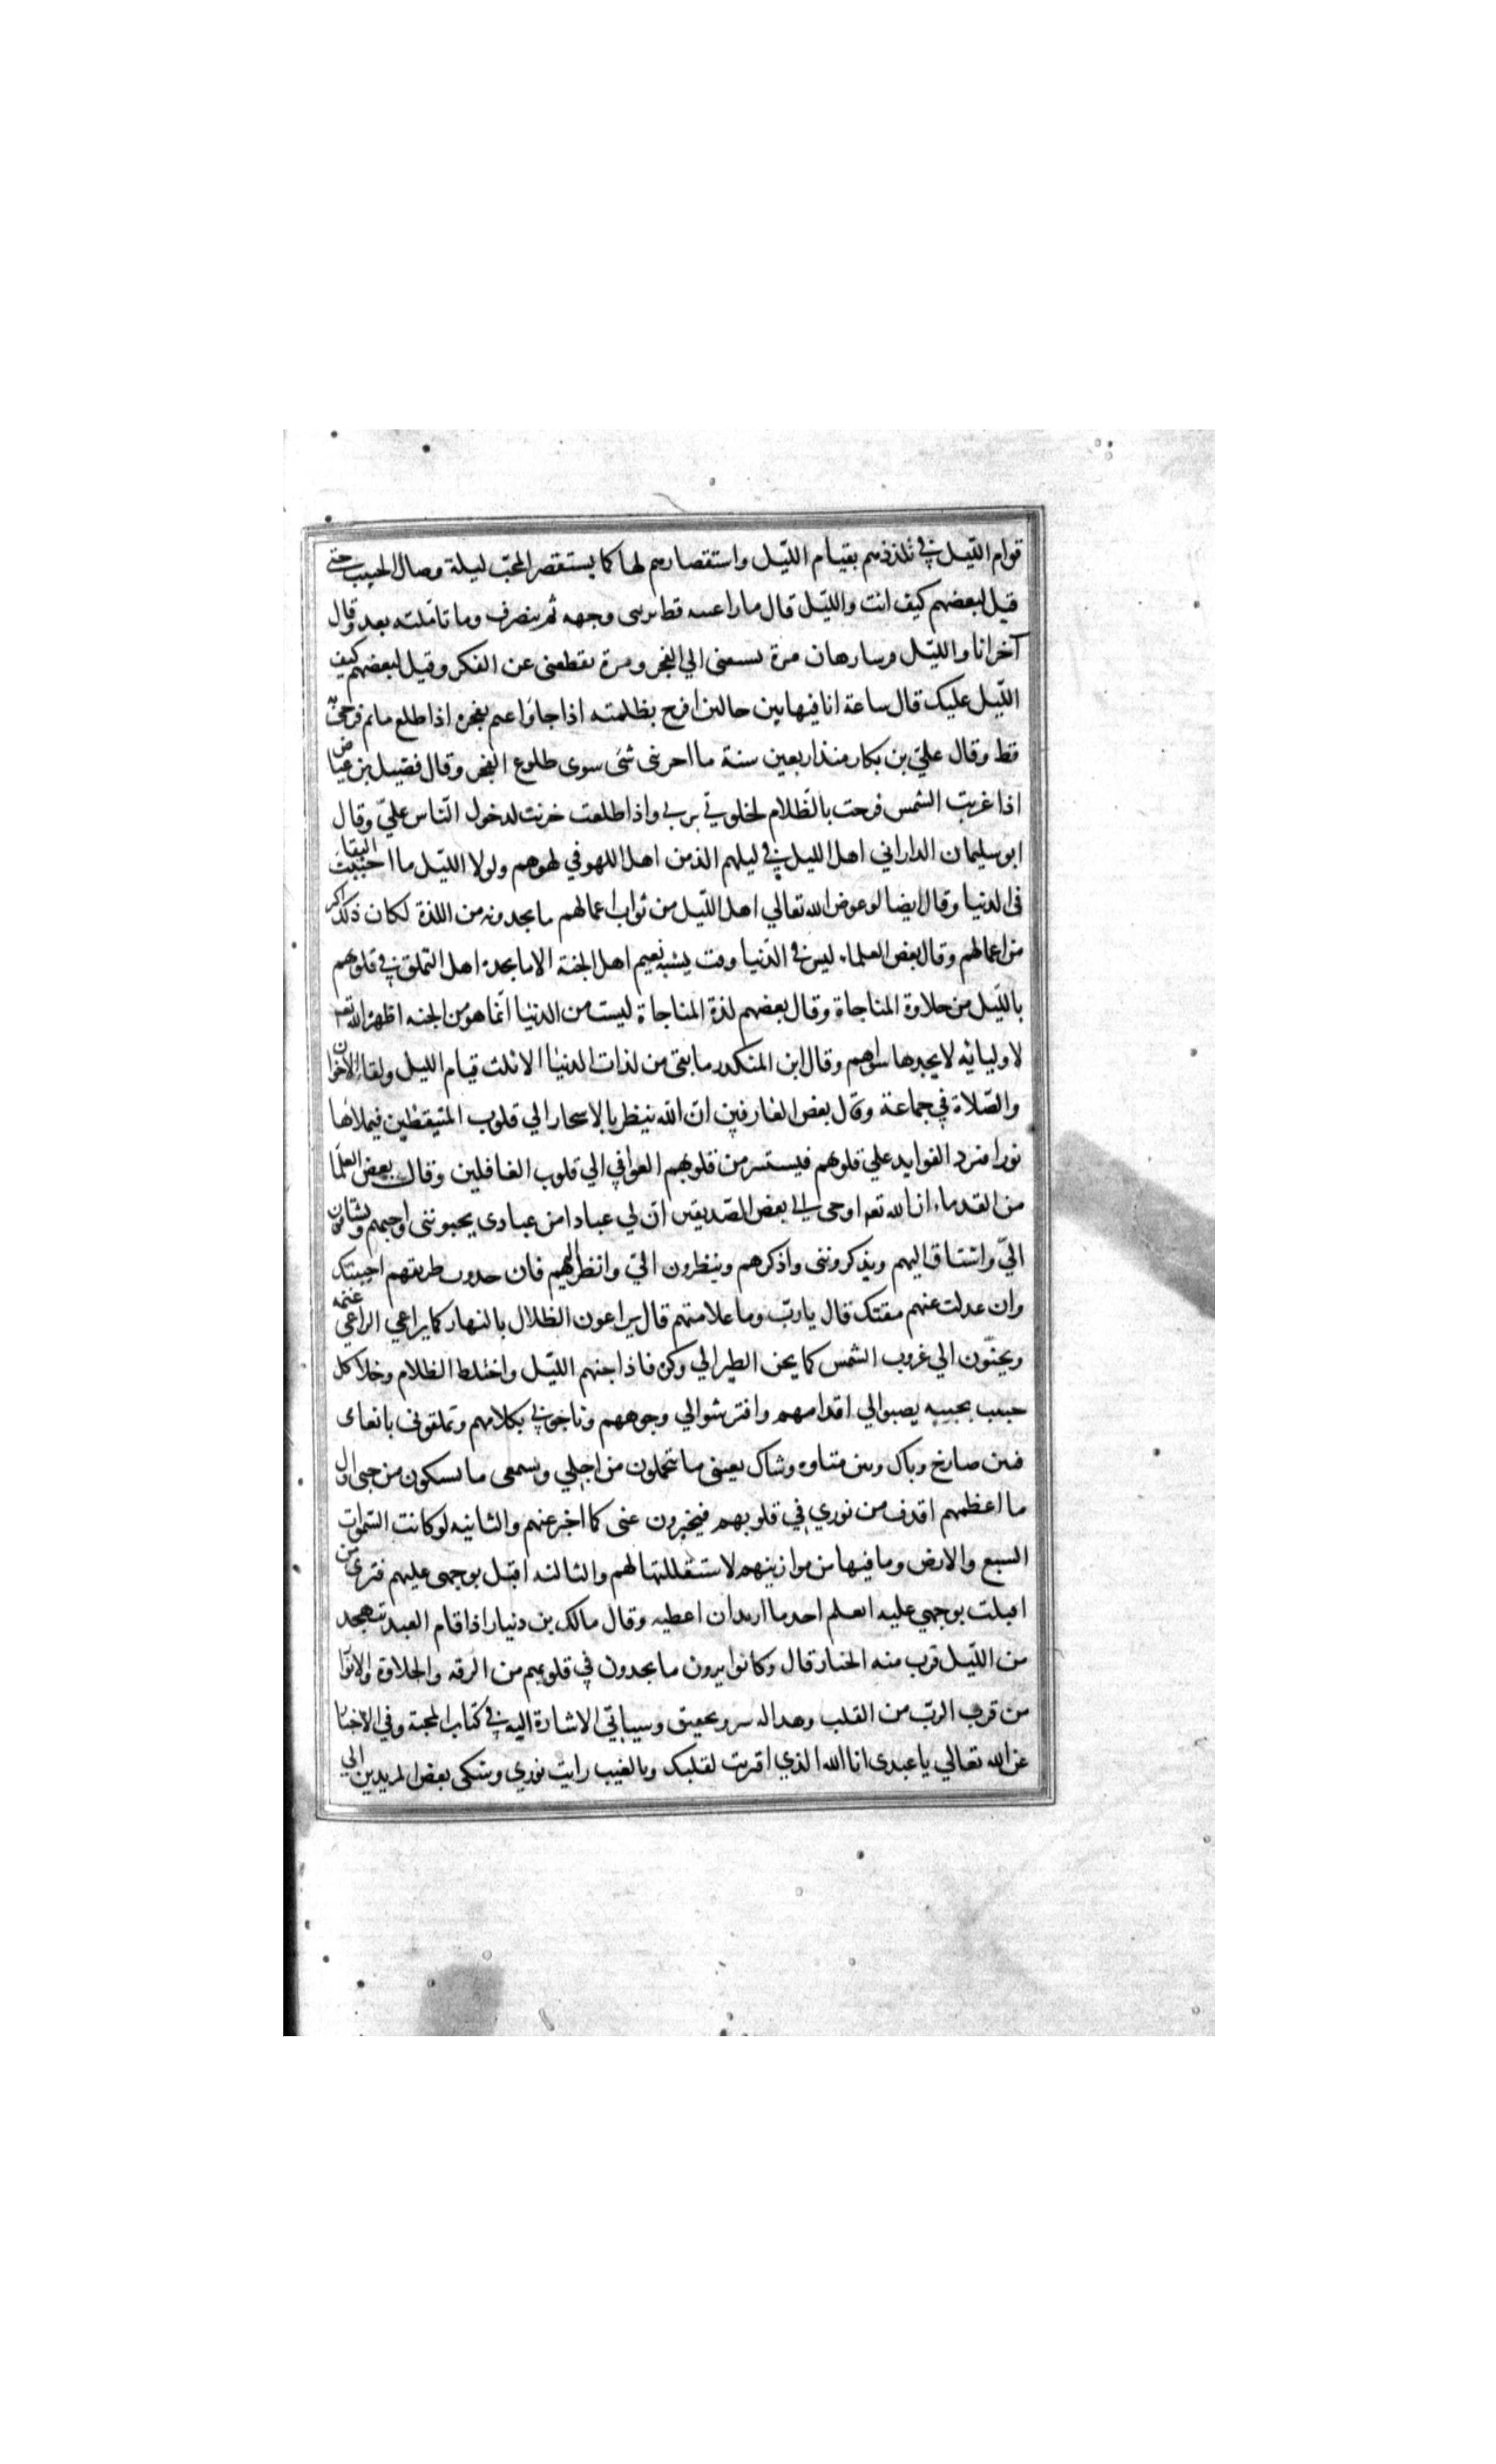 قوام الليل في تلذذهم بقيام الليل واستقصارهم لها كما يستقصر المحب ليلة وصال الحبيب حتى
قيل لبعضهم كيف انت والليل قال ما راعيته قط يريني وجهه ثم ينصرف وما تاملته بعد وقال
آخر انا والليل فرسا رهان مرة يسبقني الي الفجر ومرة يقطعني عن الفكر وقيل لبعضهم كيف
الليل عليك قال ساعة انا فيها بين حالين افرح بظلمته اذا جاء واغتم بفجره اذا طلع ما تم فرحي به
قط وقال علي بن بكار منذ اربعين سنة ما احزنني شئ سوى طلوع الفجر وقال فضيل بن عياض
اذا غربت الشمس فرحت بالظلام لخلوتي بربي واذا طلعت حزنت لدخول الناس علي وقال
ابو سليمان الداراني اهل الليل في ليلهم الذ من اهل اللهو في لهوهم ولولا الليل ما احببت البقاء
في الدنيا وقال ايضا لو عوض الله تعالي اهل الليل من ثواب اعمالهم ما يجدونه من اللذة لكان ذلك اكثر
من اعمالهم وقال بعض العلماء ليس في الدنيا وقت يشبه نعيم اهل الجنة الا ما يجده اهل التملق في قلوبهم
بالليل من حلاوة المناجاة وقال بعضهم لذة المناجاة ليست من الدنيا انما هو من الجنه اظهره الله تعه
لاوليائه لا يجدها سواهم وقال ابن المنكدر ما بقي من لذات الدنيا الا ثلث قيام الليل ولقاء الاخوان
والصلاة في جماعة وقال بعض العارفين ان الله ينظر بالاسحار الي قلوب المتيقظين فيملاها
نورا فترد الفوايد علي قلوبهم فيستسر من قلوبهم العوافي الي قلوب الغافلين وقال بعض العلما
من القدماء ان الله تعه اوحى الى بعض الصديقين ان لي عبادا من عبادى يحبونني واحبهم ويشتاقون
الي واشتاق اليهم ويذكرونني واذكرهم وينظرون الي وانظر اليهم فان حذوت طريقهم احببتك
وان عدلت عنهم مقتك قال يا رب وما علامتهم قال يراعون الظلال بالنهار كما يراعي الراعي غنمه
ويحنون الي غروب الشمس كما يحن الطير الي وكره فاذا جنهم الليل واختلط الظلام وخلا كل
حبيب بحبيبه يصبوا لي اقدامهم وافترشوا لي وجوههم وناجوني بكلامهم وتملقوني بانعامي
فبين صارخ وباك وبين متاوه وشاك بعيني ما يتحملون من اجلي وبسمعي ما يسكون من حبي اول
ما اعظمهم اقذف من نوري في قلوبهم فيخبرون عني كما اخبر عنهم والثانيه لو كانت السموات
السبع والارض وما فيها من موازينهم لاستقللتها لهم والثالثه اقبل بوجهي عليهم فترى من
اقبلت بوجهي عليه ايعلم احد ما اريد ان اعطيه وقال مالك بن دينار اذا قام العبد تهجد
من الليل قرب منه الجبار قال وكانوا يرون ما يجدون في قلوبهم من الرقه والحلاوة والانوار
من قرب الرب من القلب وهذا له سر وتحقيق وسياتي الاشارة اليه في كتاب المحبة وفي الاخبار
عن الله تعالي يا عبدى انا الله الذي اقتربت لقلبك وبالغيب رايت نوري وشكى بعض المريدين الي